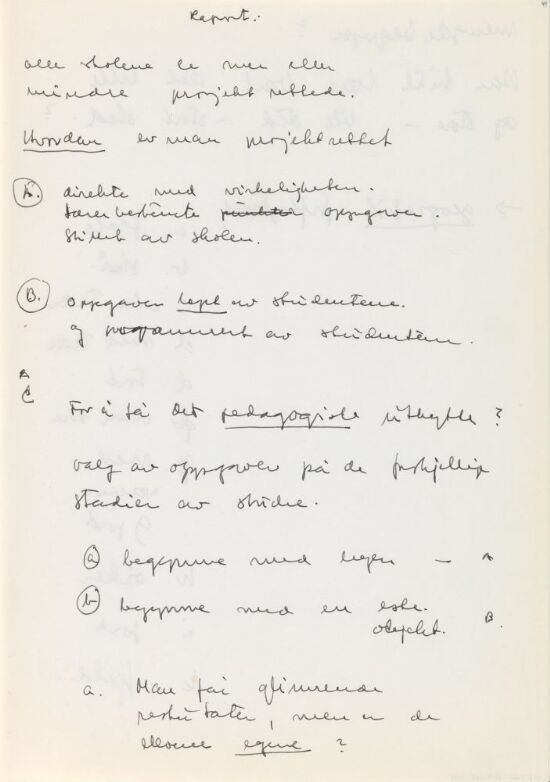 Rapport.
alle skolene er mer eller
mindre projektrettede.
Hvordan er man projektrettet
A. direkte med virkeligheten.
lærerbestemte oppgaver.
styrt av skolen.
B. oppgaven løst av studentene.
og programmert av studentene.
A
C
For å få det pedagogiske utbytte?
valg av oppgaver på de forskjellige
stadier av studie.
a begynne med — A
b begynne med en
objekt. B.
a. Man får glimrende
resultater, men er de
elevene egne?